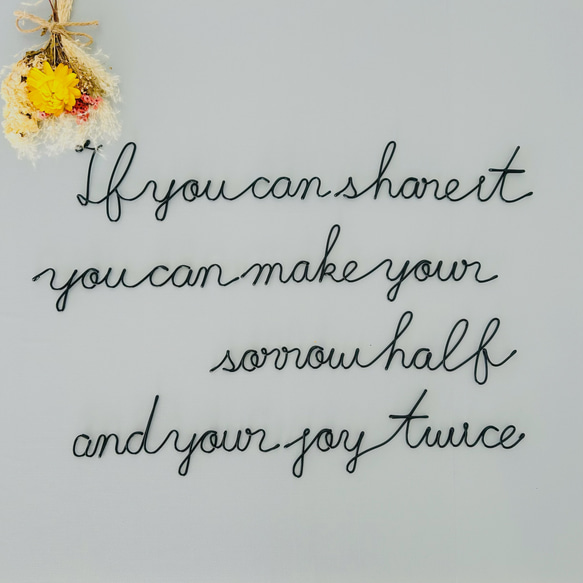 If you can share it
you can make your
sorrow half
and your joy twice